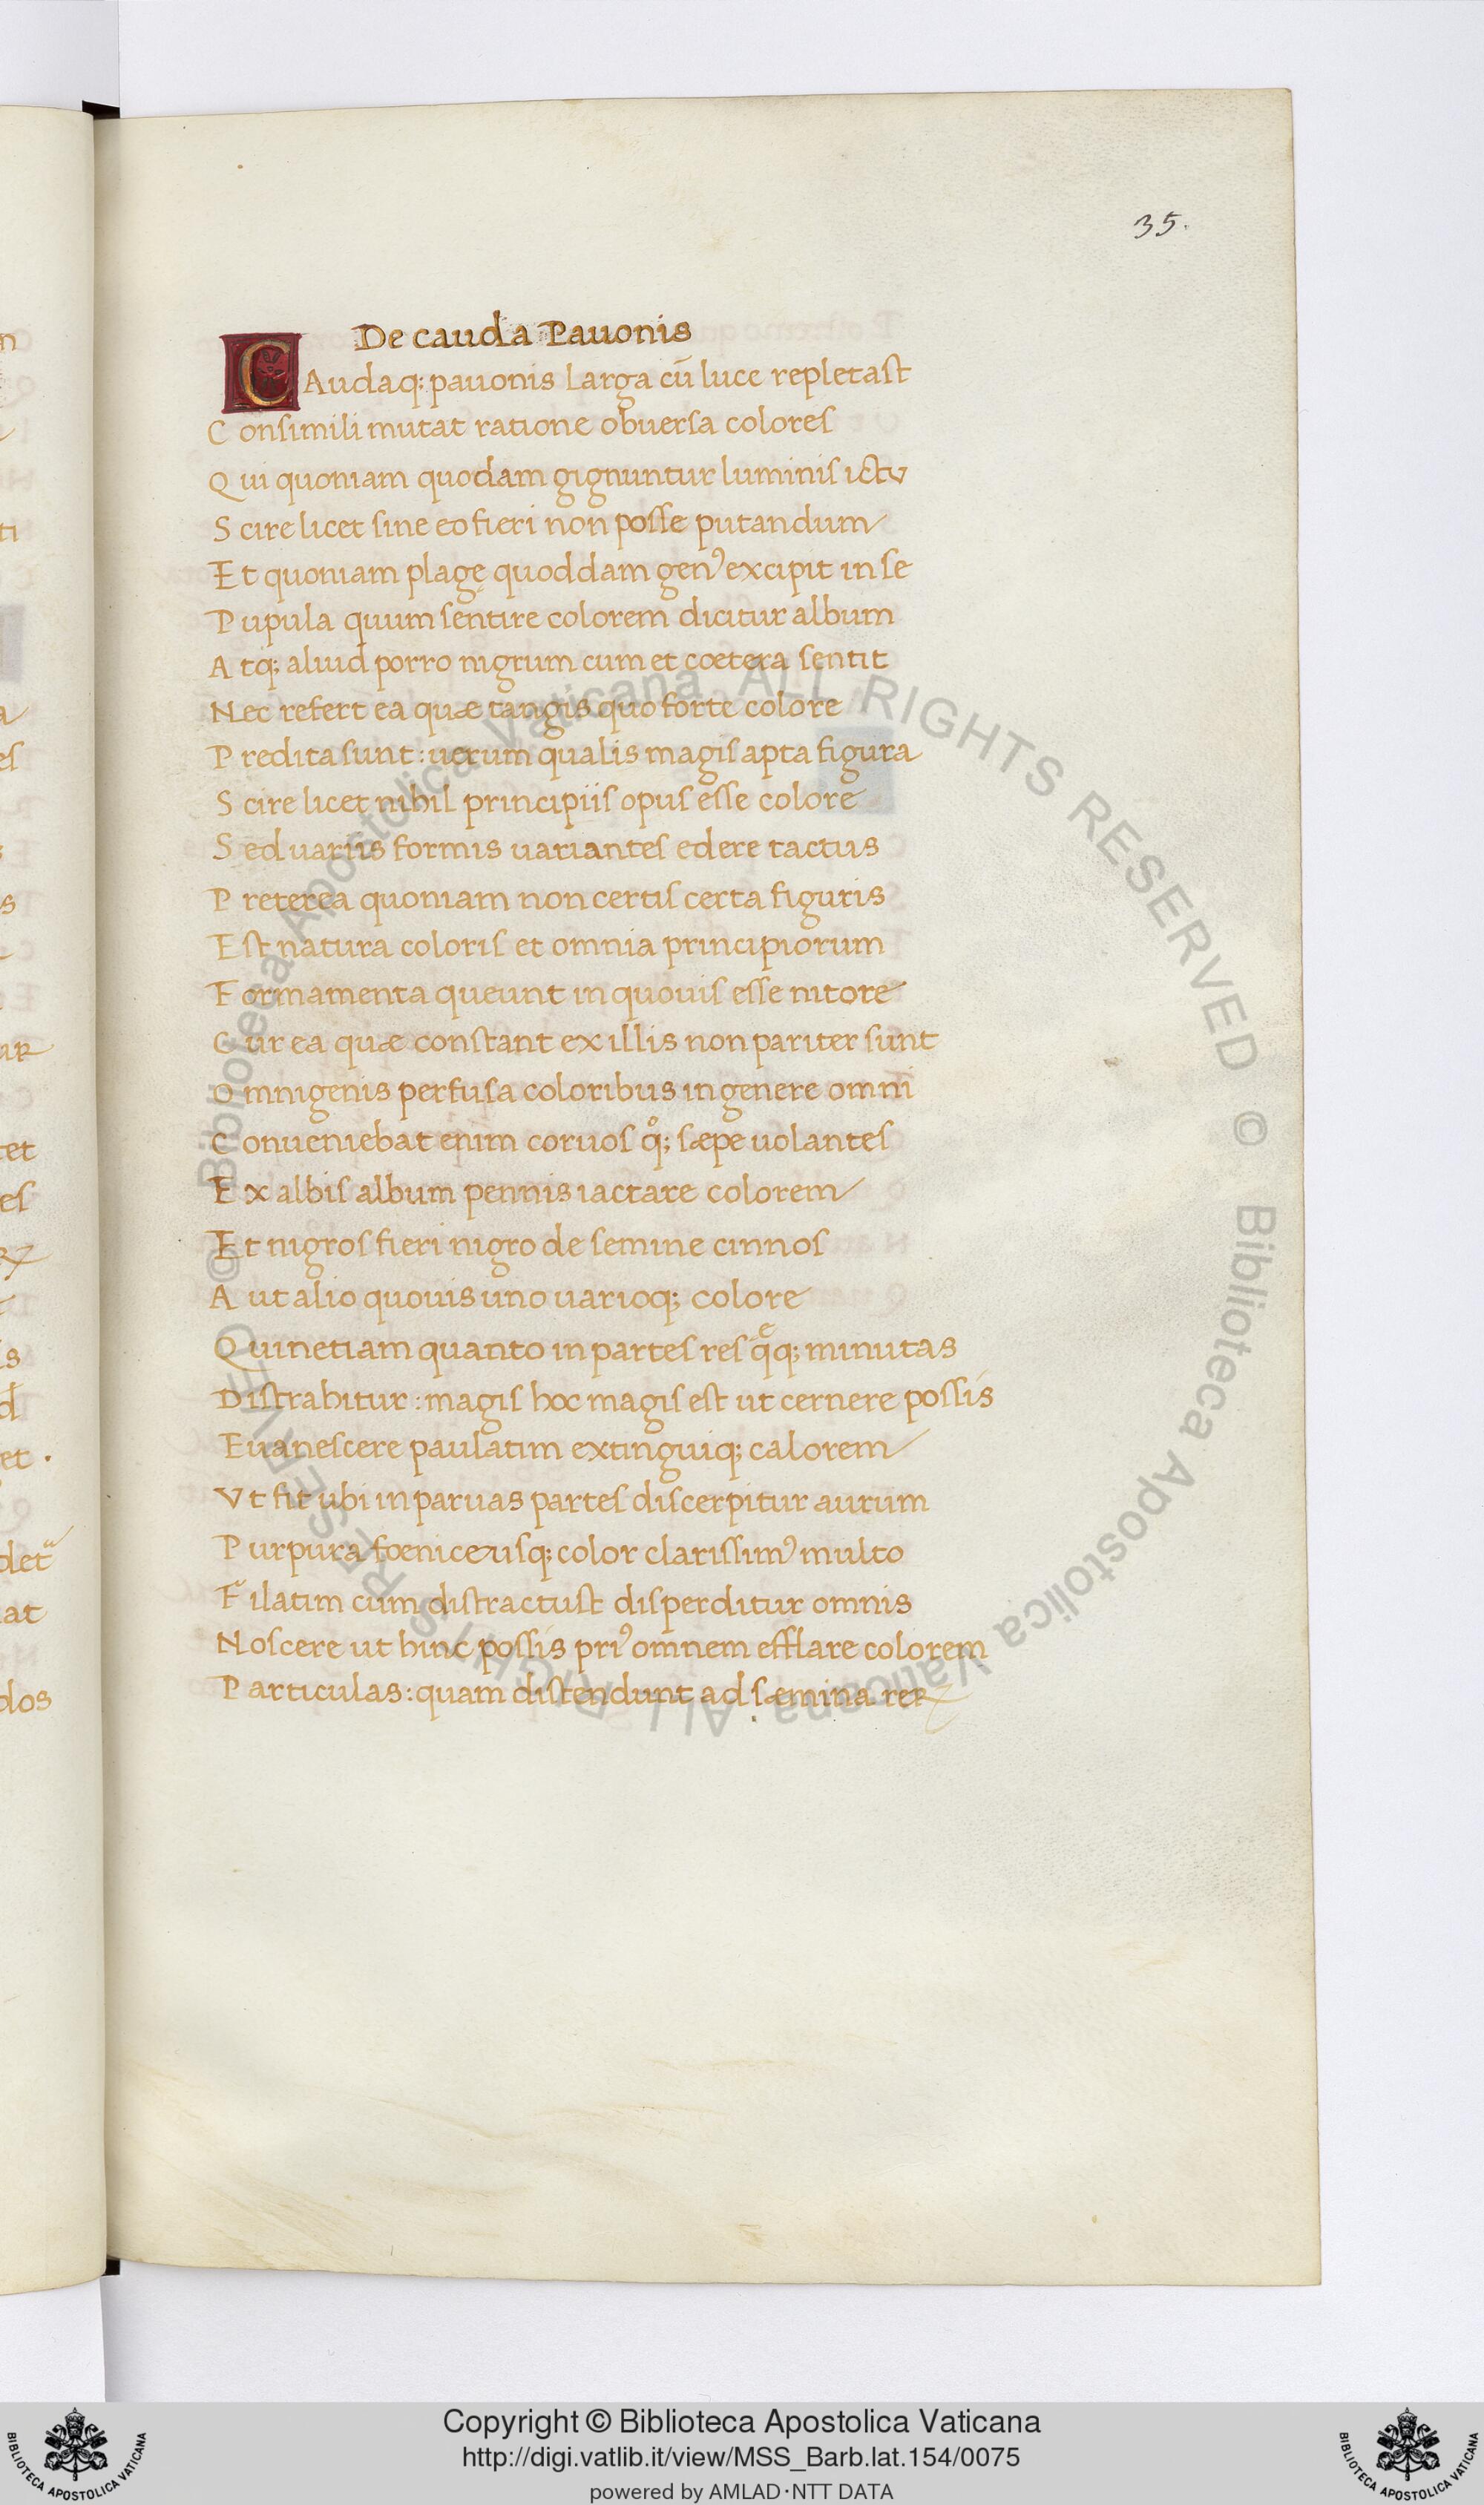 35.
De cauda Pauonis
CAudaq; pauonis larga cū luce repletast
Consimili mutat ratione obuersa colores
Qui quoniam quodam gignuntur luminis ictu
Scire licet sine eo fieri non posse putandum
Et quoniam plagę quoddam genꝰ excipit in se
Pupula quum sentire colorem dicitur album
Atq; aliud porro nigrum cum et coetera sentit
Nec refert ea quæ tangis quo forte colore
Predita sunt: uerum qualis magis apta figura
Scire licet nihil principiis opus esse colore
Sed uariis formis uariantes edere tactus
Preterea quoniam non certis certa figuris
Est natura coloris et omnia principiorum
Formamenta queunt in quouis esse nitore
Cur ea quæ constant ex illis non pariter sunt
Omnigenis perfusa coloribus in genere omni
Conueniebat enim coruos qͦq; sæpe uolantes
Ex albis album pennis iactare colorem
Et nigros fieri nigro de semine cinnos
Aut alio quouis uno uarioq; colore
Quinetiam quanto in partes res qͤq; minutas
Distrahitur: magis hoc magis est ut cernere possis
Euanescere paulatim extinguiq; calorem
Vt fit ubi in paruas partes discerpitur aurum
Purpura foeniceusq; color clarissimꝰ multo
Filatim cum distractust disperditur omnis
Noscere ut hinc possis priꝰ omnem efflare colorem
Particulas: quam distendunt ad sæmina reꝝ
n
ti
a
es
s
ur
tet
es
is
d
et.
det
at
dos
© Biblioteca Apostolica Vaticana ALL RIGHTS RESERVED
© Biblioteca Apostolica Vaticana ALL RIGHTS RESERVED
Copyright © Biblioteca Apostolica Vaticana
http://digi.vatlib.it/view/MSS_Barb.lat.154/0075
powered by AMLAD·NTT DATA
BIBLIOTECA APOSTOLICA VATICANA
BIBLIOTECA APOSTOLICA VATICANA